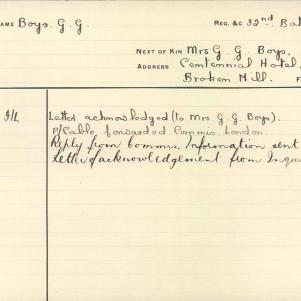 NAME Boys. G. G. REG. &C 32nd. Bat
NEXT OF KIN Mrs G. G. Boys,
ADDRESS Centennial Hotel,
Broken Hill. F
Letter acknowledged (to Mrs G. G. Boys).
P/Cable forwarded Commis. London.
Reply from Commrs. Information sent
Letter of acknowledgement from Inqui